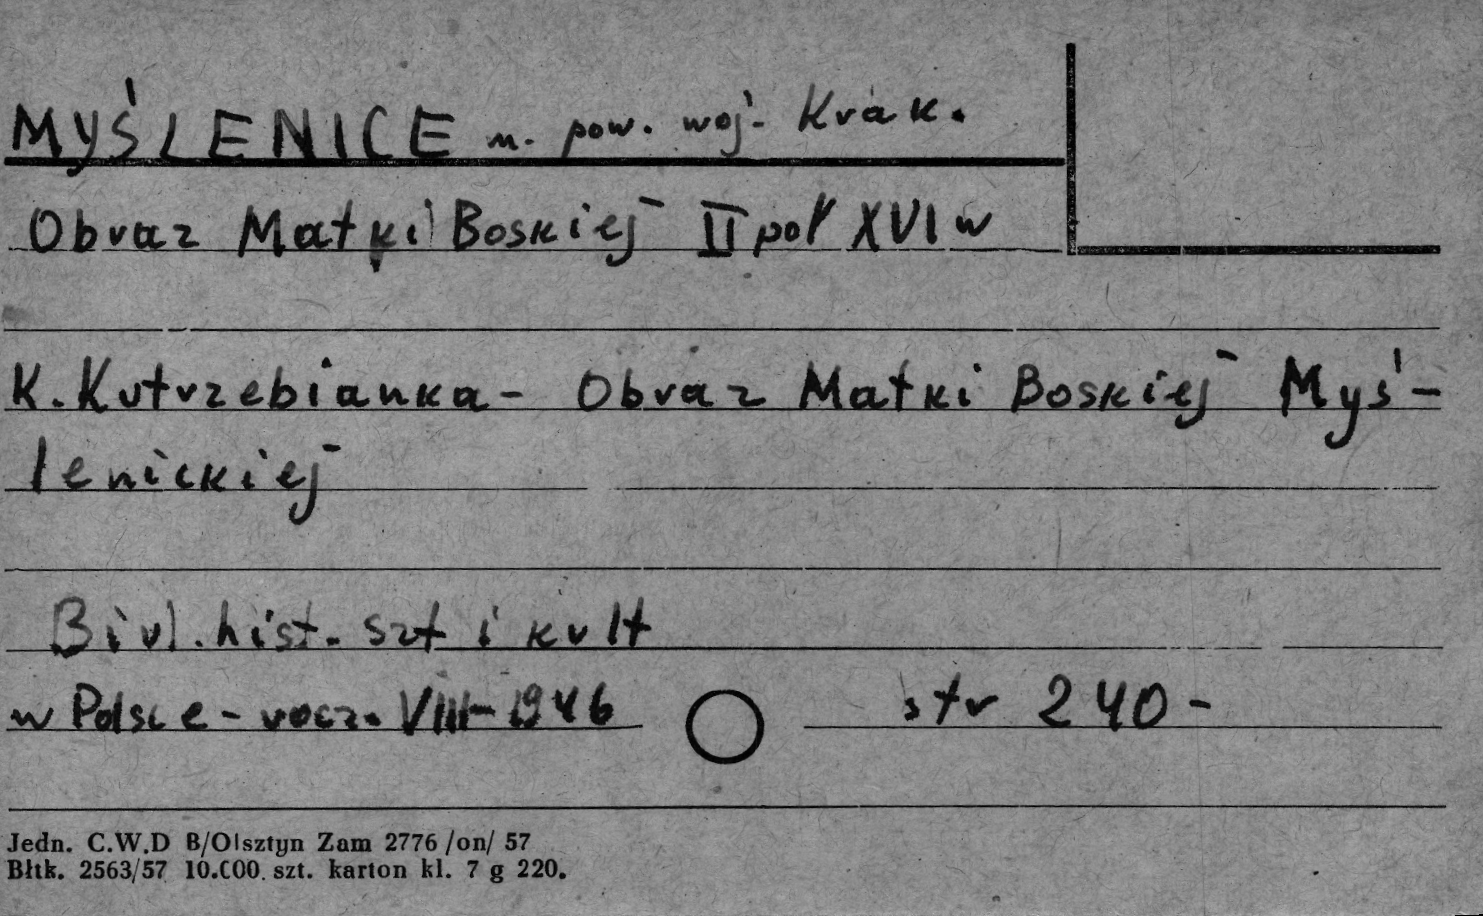 MYŚLENICE m. pow. woj. Krak.
Obraz Matki Boskiej II poł XVI w
K. Kutrzebianka - Obraz Matki Boskiej Myś-
lenickiej
Biul. hist. szt i kult
w Polsce - rocz. VIII - 1946 str 240 -
Jedn. C.W.D B/Olsztyn Zam 2776 /on/ 57
Błtk. 2563/57 10.000. szt. karton kl. 7 g 220.